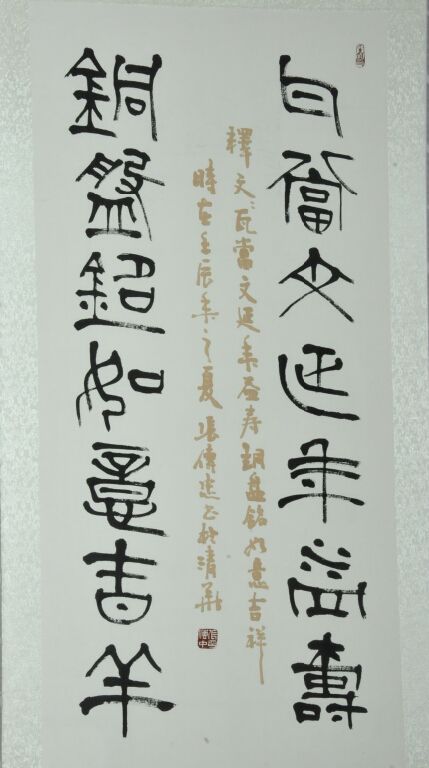 瓦當文延年益壽
釋文:瓦當文延年益寿銅盤銘如意吉祥
時在壬辰年之夏張傳忠书於清華
銅盤銘如意吉羊